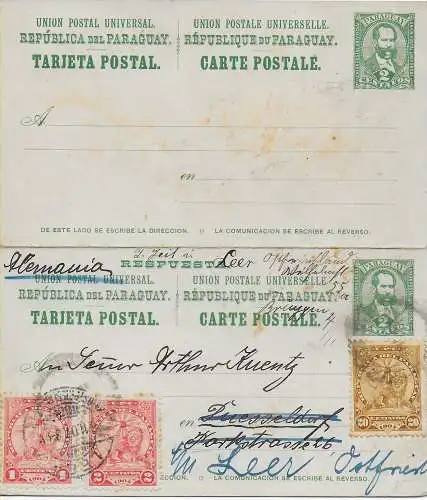 UNION POSTAL UNIVERSAL. UNION POSTALE UNIVERSELLE.
REPÚBLICA DEL PARAGUAY. RÉPUBLIQUE DU PARAGUAY.
TARJETA POSTAL. CARTE POSTALE.
PARAGUAY
2
CENTAVOS
A
en
DE ESTE LADO SE ESCRIBE LA DIRECCION. LA COMUNICACION SE ESCRIBE AL REVERSO.
z. Zeit in Leer
Alemania RESPUESTA
UNION POSTAL UNIVERSAL. UNION POSTALE UNIVERSELLE.
REPÚBLICA DEL PARAGUAY. RÉPUBLIQUE DU PARAGUAY.
TARJETA POSTAL. CARTE POSTALE.
PARAGUAY
2
An Señor Arthur Kuentz
en Duesseldorf
Parkstrasse
in Leer Ostfries
DIRECCION. LA COMUNICACION SE ESCRIBE AL REVERSO.
1 1904 1
2 1904 2
20 1904 20